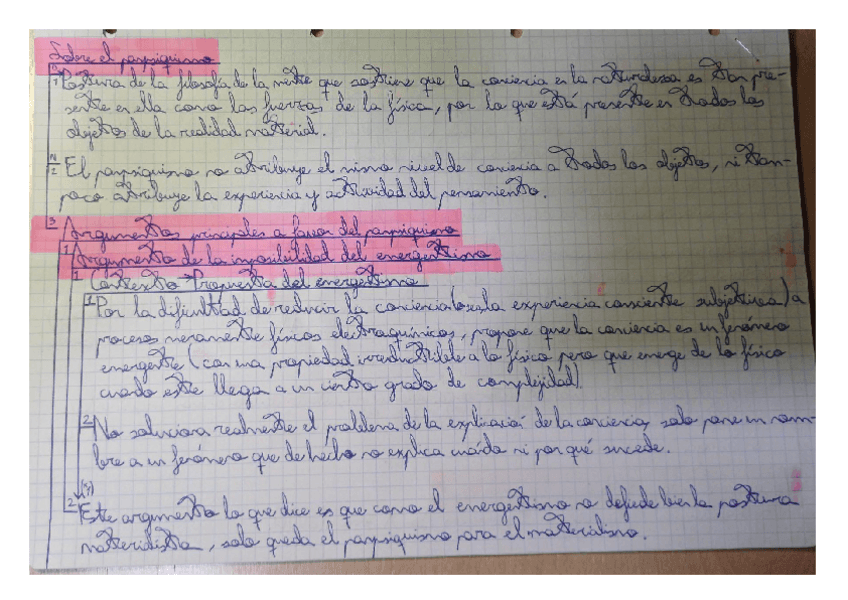 Sobre el panpsiquismo
1 Postura de la filosofía de la mente que sostiene que la conciencia en la naturaleza es tan pre-
sente en ella como las fuerzas de la física, por lo que está presente en todos los
objetos de la realidad material.
2 El panpsiquismo no atribuye el mismo nivel de conciencia a todos los objetos, ni tam-
poco atribuye la experiencia y actividad del pensamiento.
3 Argumentos principales a favor del panpsiquismo
1 Argumento de la imposibilidad del emergentismo
1 Contexto → Propuesta del emergentismo
1 Por la dificultad de reducir la conciencia (o sea la experiencia consciente subjetiva) a
procesos meramente físicos electroquímicos, propone que la conciencia es un fenómeno
emergente (con una propiedad irreductible a lo físico pero que emerge de lo físico
cuando este llega a un cierto grado de complejidad).
2 No soluciona realmente el problema de la explicación de la conciencia, solo pone un nom-
bre a un fenómeno que de hecho no explica cuándo ni por qué sucede.
2 Este argumento lo que dice es que como el emergentismo no defiende bien la postura
materialista, solo queda el panpsiquismo para el materialismo.